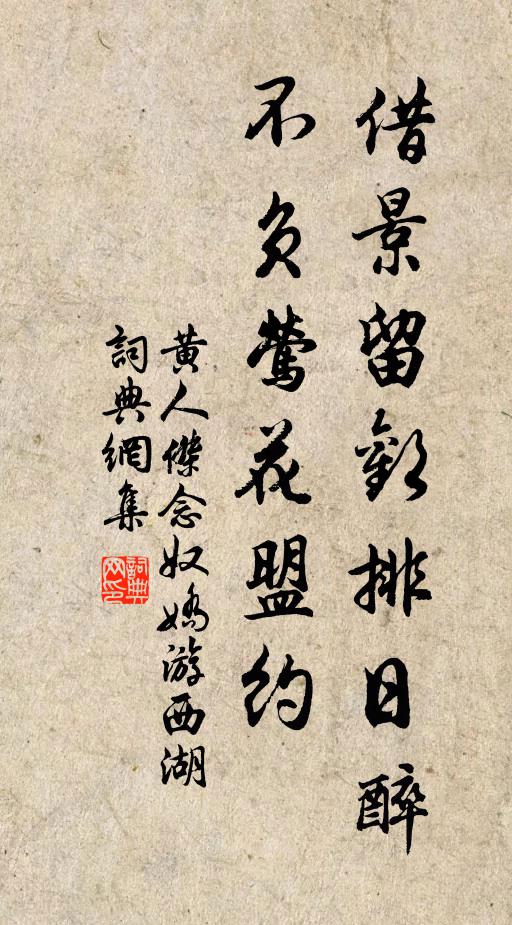 借景留歡排日醉
不負鶯花盟約
黄人傑念奴嬌游西湖
詞典網集
詞典网印